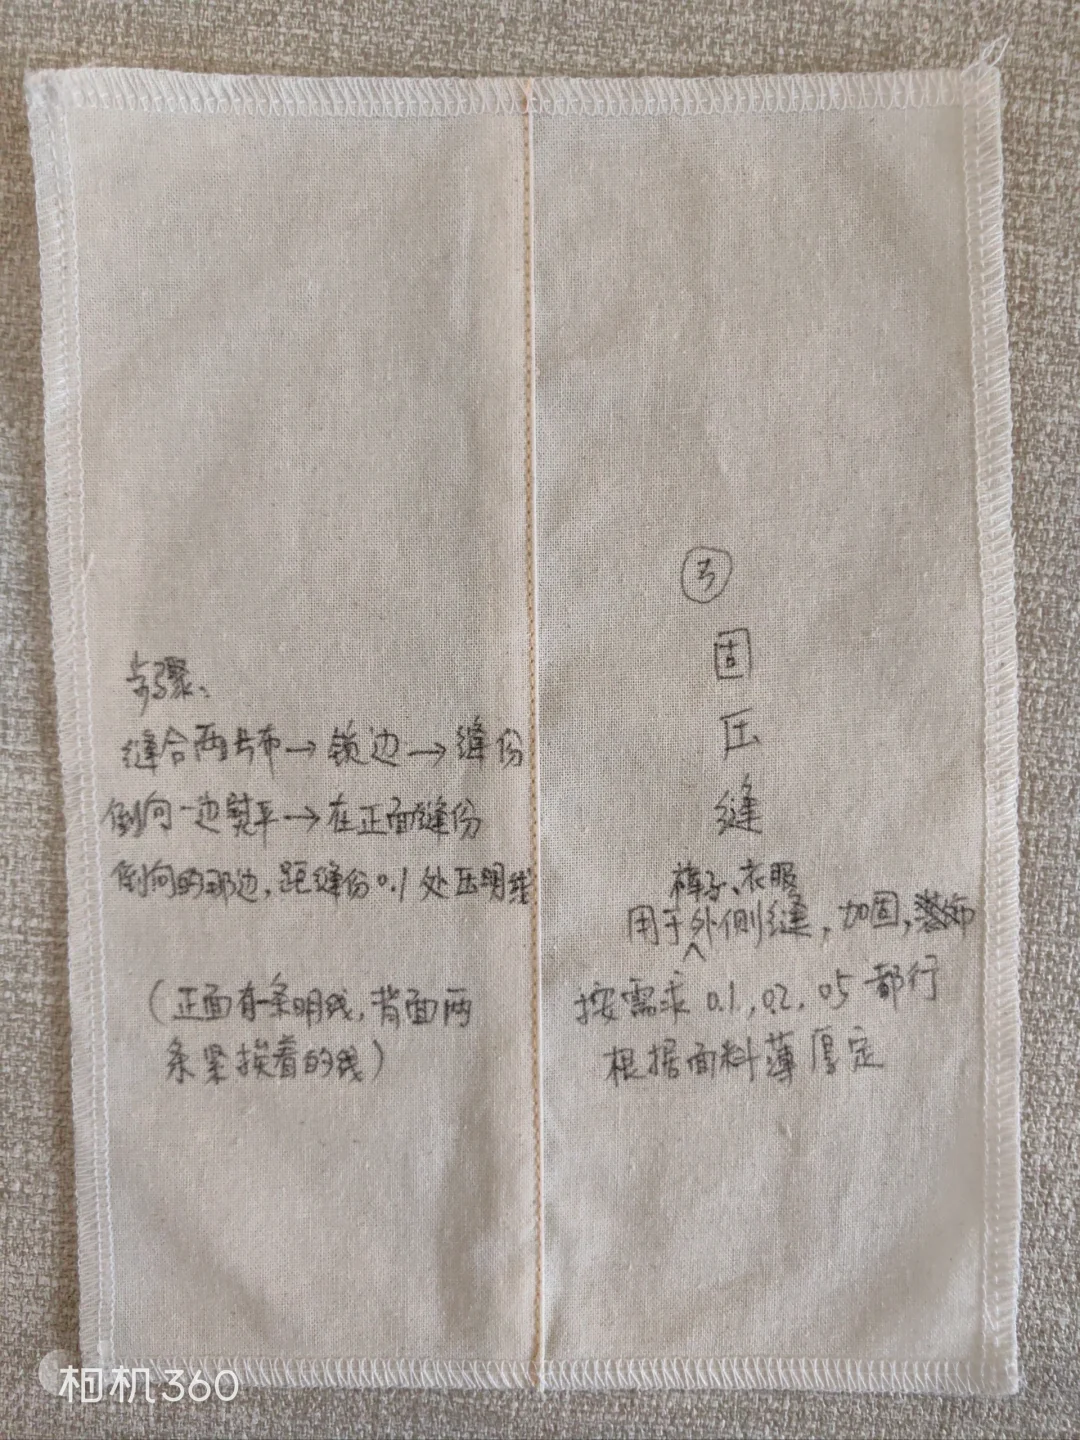 步骤、
缝合两片布→锁边→缝份
倒向一边熨平→在正面缝份
倒向的那边，距缝份0.1处压明线
（正面有一条明线，背面两
条紧挨着的线）
③
固
压
缝
裤子、衣服
用于外侧缝，加固，装饰
按需求0.1，0.2，0.5都行
根据面料薄厚定
相机360